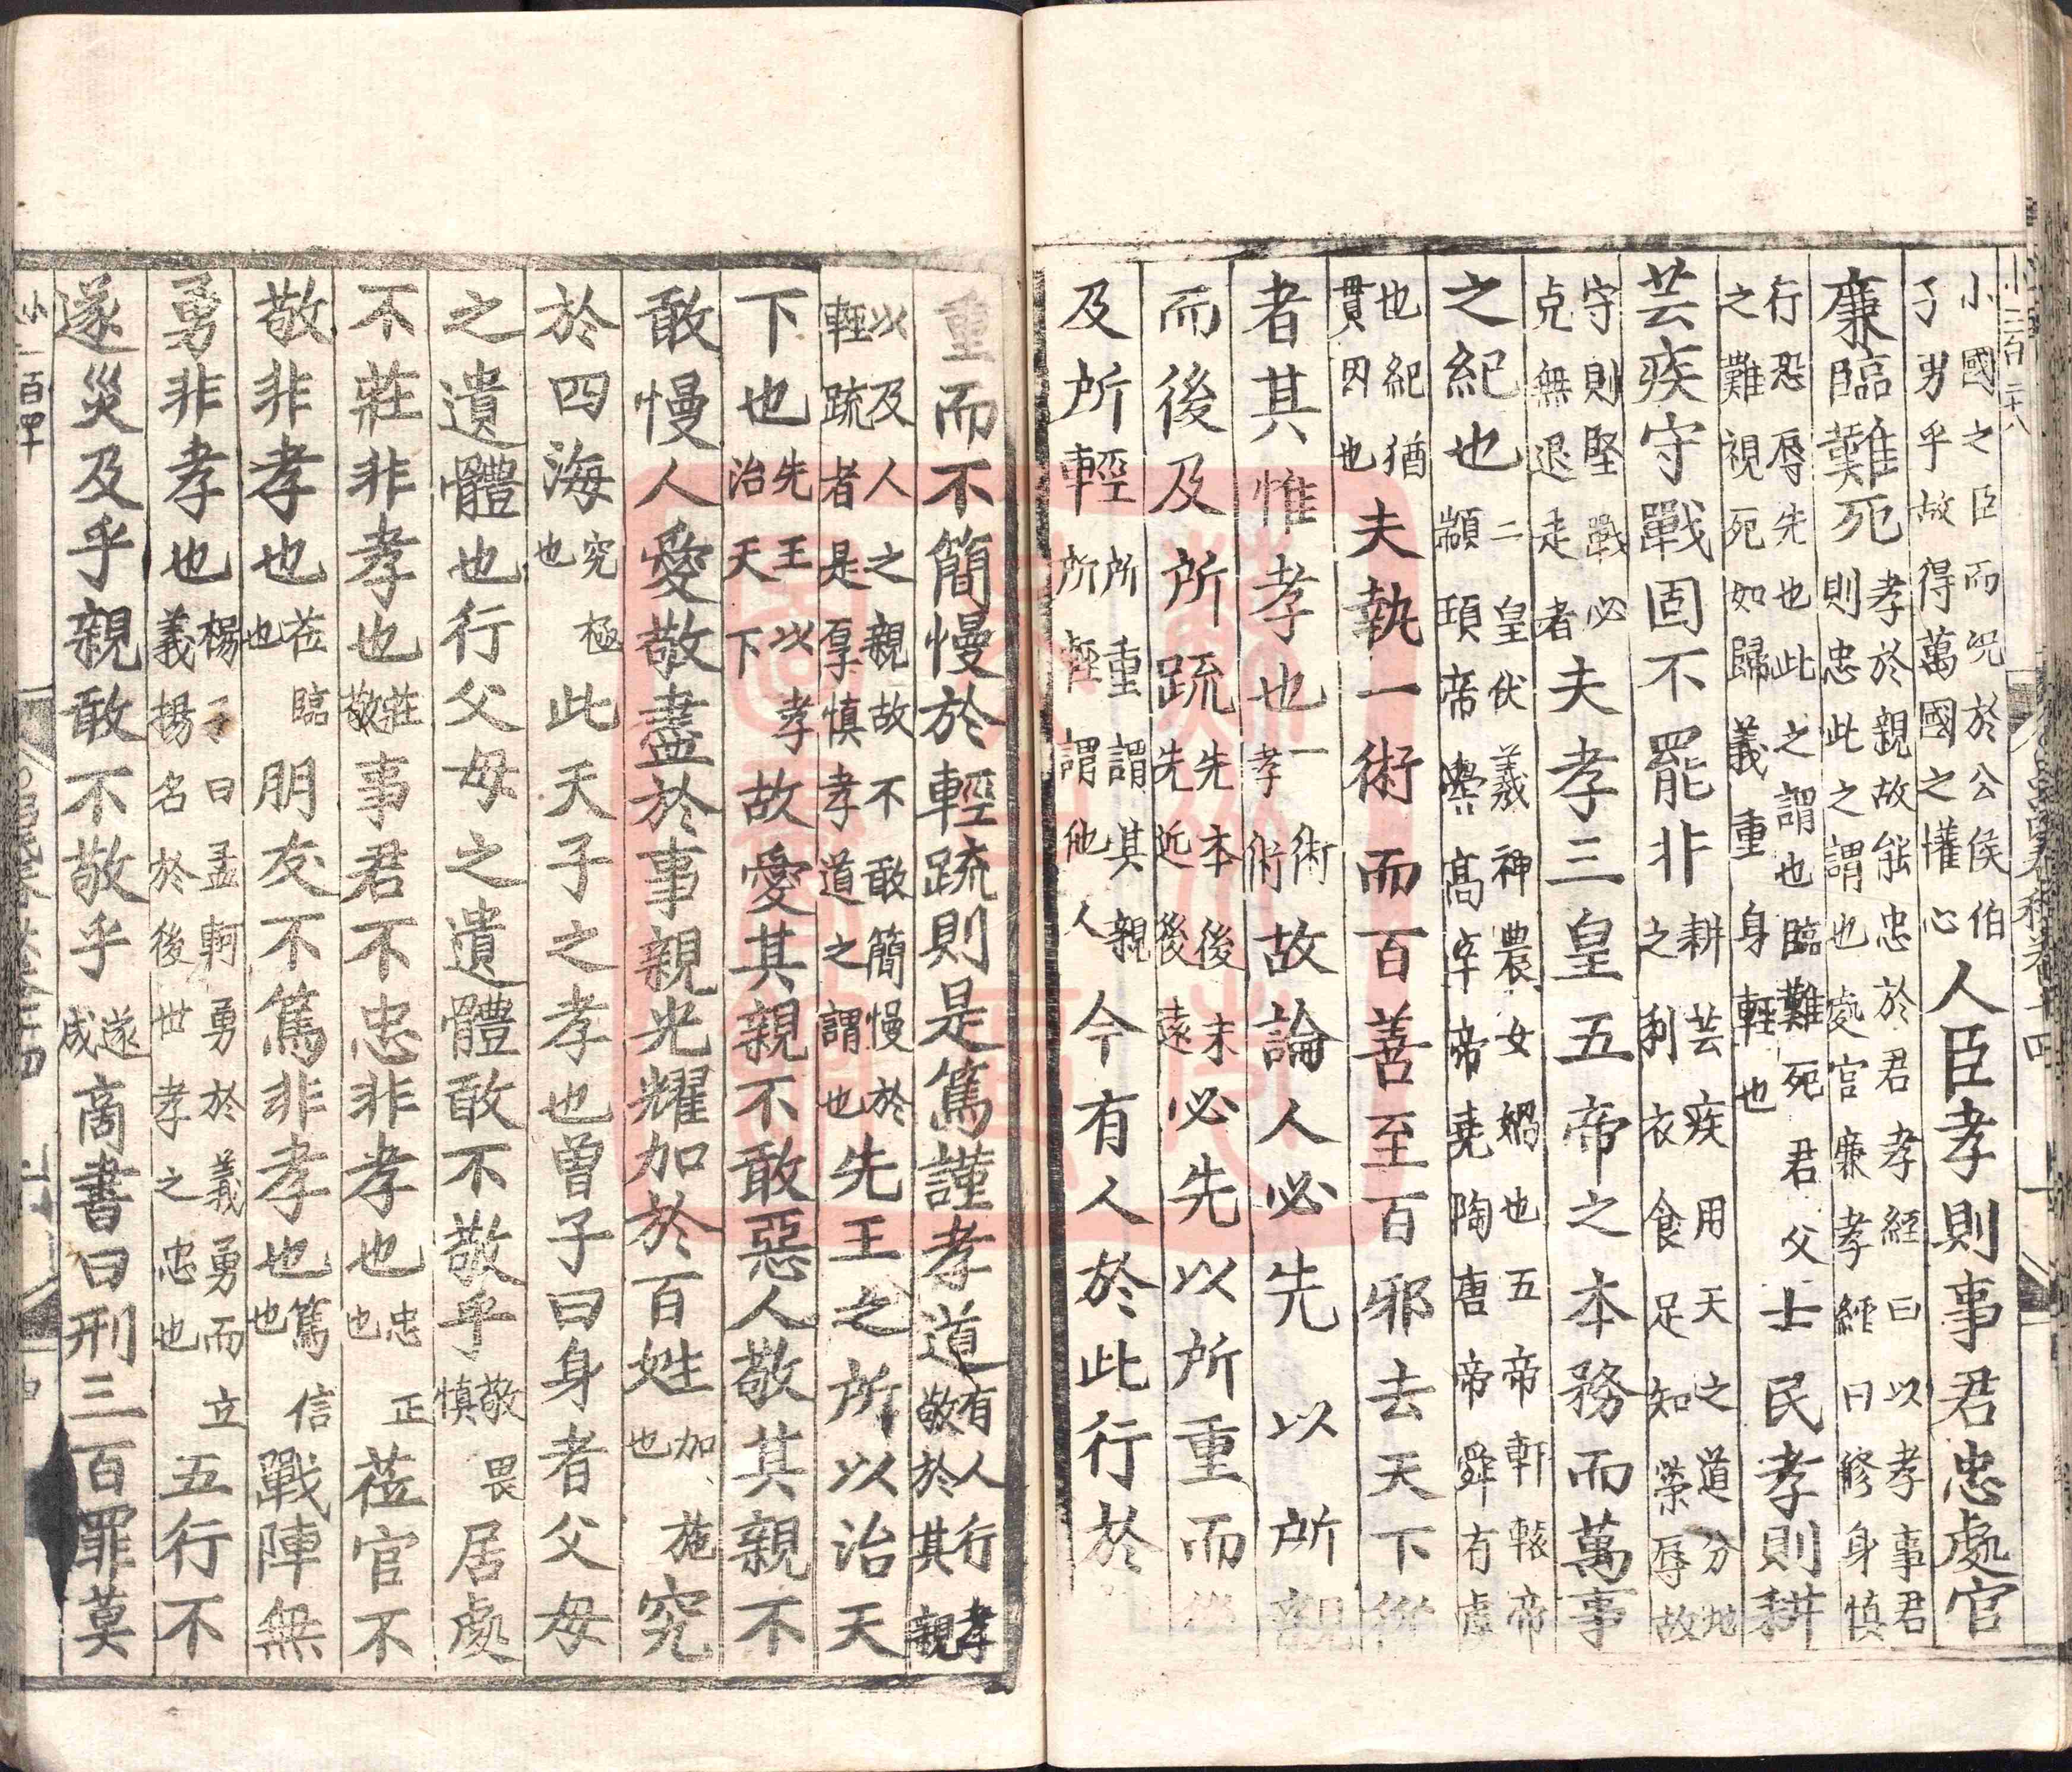 小國之臣而況於公侯伯子男乎故得萬國之懽心人臣孝則事君忠處官
廉臨難死孝於親故能忠於君孝經曰以孝事君則忠此之謂也處官廉孝經曰修身慎
行恐辱先也此之謂也臨難死君父之難視死如歸義重身輕也士民孝則耕
芸疾守戰固不罷非耕芸疾用天之道分地之利衣食足知榮辱故
守則堅戰必克無退走者夫孝三皇五帝之本務而萬事
之紀也二皇伏羲神農女媧也五帝軒轅帝顓頊帝嚳高辛帝堯陶唐帝舜有虞
也紀猶貫因也夫執一術而百善至百邪去天下從
者其惟孝也一術孝術故論人必先以所親
而後及所疏先本後末先近後遠必先以所重而後
及所輕所重謂其親所輕謂他人今有人於此行於
重而不簡慢於輕疏則是篤謹孝道有人行孝敬於其親
以及人之親故不敢簡慢於輕疏者是厚慎孝道之謂也先王之所以治天
下也先王以孝治天下故愛其親不敢惡人敬其親不
敢慢人愛敬盡於事親光耀加於百姓加施也究
於四海究極也此天子之孝也曾子曰身者父母
之遺體也行父母之遺體敢不敬乎敬畏慎居處
不莊非孝也莊敬事君不忠非孝也忠正也莅官不
敬非孝也莅臨也朋友不篤非孝也篤信也戰陣無
勇非孝也楊子曰孟軻勇於義勇而立義揚名於後世孝之忠也五行不
遂災及乎親敢不敬乎遂成商書曰刑三百罪莫